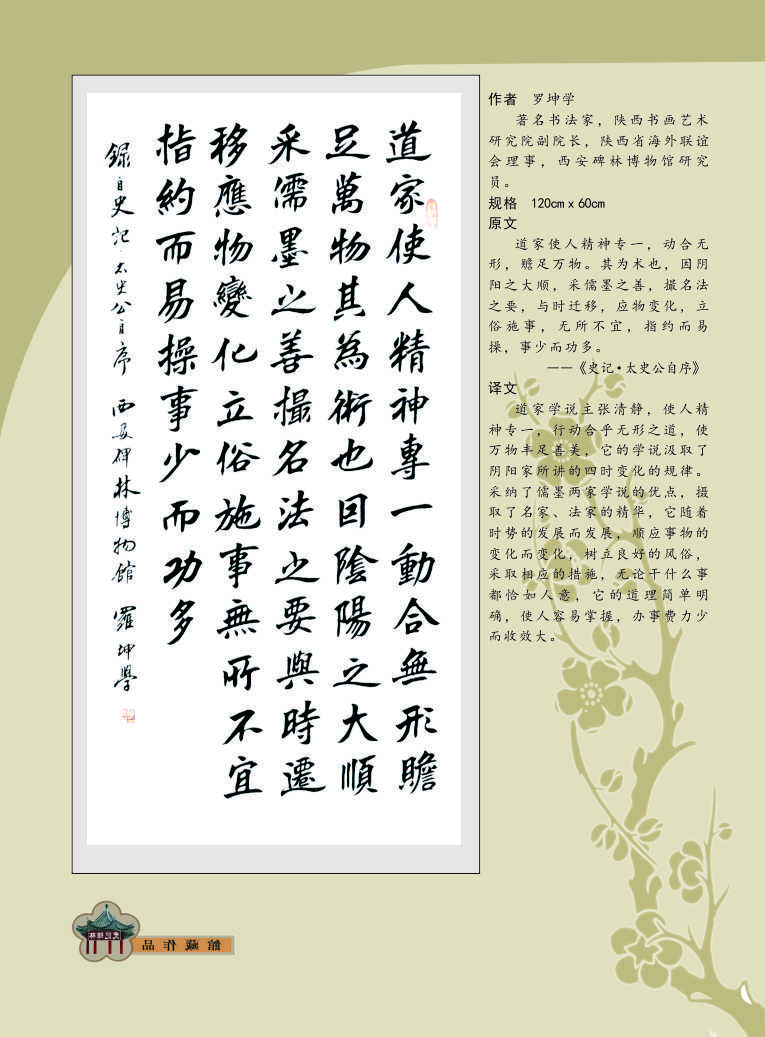 道家使人精神專一動合無形贍
足萬物其為術也因陰陽之大順
采儒墨之善撮名法之要與時遷
移應物變化立俗施事無所不宜
指約而易操事少而功多
錄自史記·太史公自序 西安碑林博物館 羅坤學
作者 罗坤学
著名书法家，陕西书画艺术
研究院副院长，陕西省海外联谊
会理事，西安碑林博物馆研究
员。
规格 120cm x 60cm
原文
道家使人精神专一，动合无
形，赡足万物。其为术也，因阴
阳之大顺，采儒墨之善，撮名法
之要，与时迁移，应物变化，立
俗施事，无所不宜，指约而易
操，事少而功多。
——《史记•太史公自序》
译文
道家学说主张清静，使人精
神专一，行动合乎无形之道，使
万物丰足善美，它的学说汲取了
阴阳家所讲的四时变化的规律。
采纳了儒墨两家学说的优点，摄
取了名家、法家的精华，它随着
时势的发展而发展，顺应事物的
变化而变化，树立良好的风俗，
采取相应的措施，无论干什么事
都恰如人意，它的道理简单明
确，使人容易掌握，办事费力少
而收效大。
館藏作品